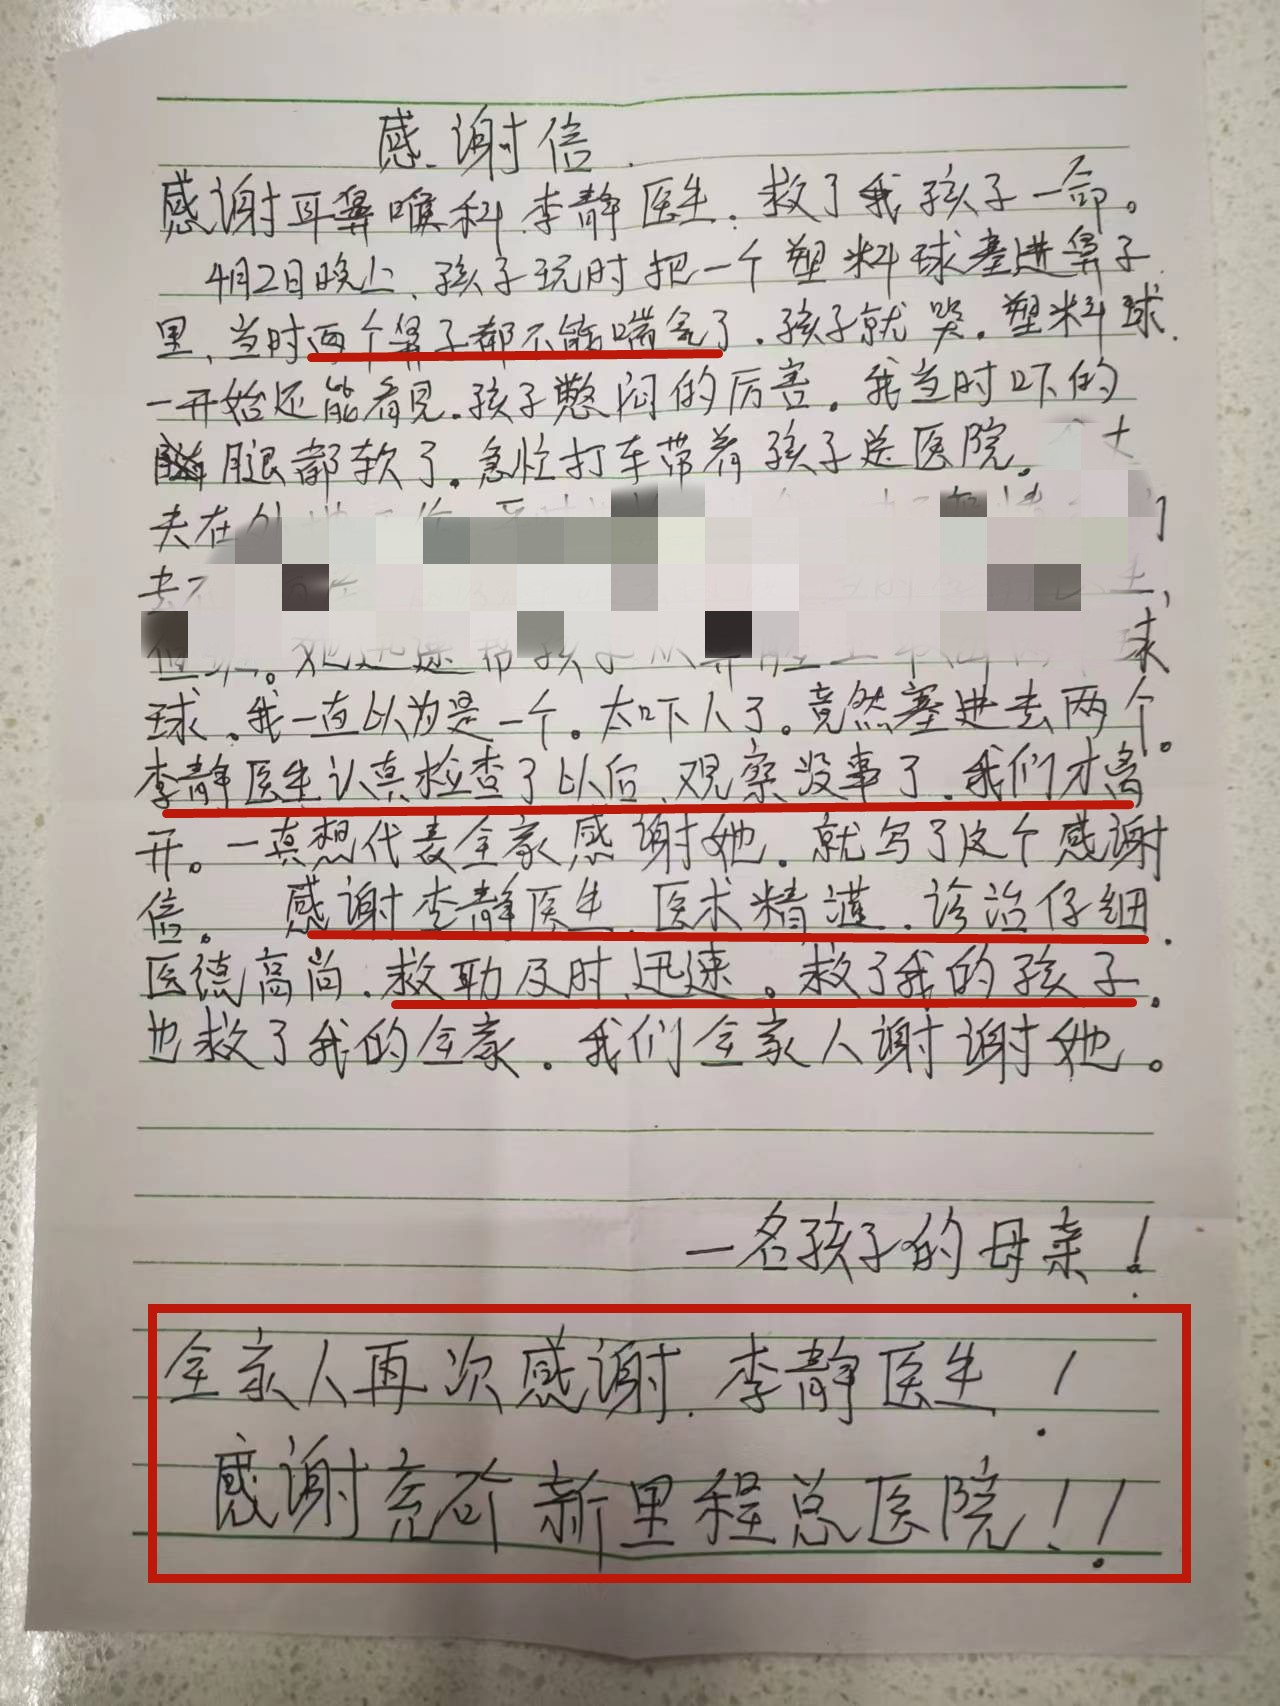 感谢信
感谢耳鼻喉科李静医生.救了我孩子一命。
4月2日晚上、孩子玩时把一个塑料球塞进鼻子
里、当时两个鼻子都不能喘气了.孩子就哭.塑料球
一开始还能看见.孩子憋闷的厉害.我当时吓的
腿都软了.急忙打车带着孩子送医院.
夫在
去
她迅速帮孩子从
球.我一直以为是一个。太吓人了。竟然塞进去两个。
李静医生认真检查了以后、观察没事了.我们才离
开。一真想代表全家感谢她.就写了这个感谢
信。 感谢李静医生.医术精湛.诊治仔细.
医德高尚.救助及时、迅速。救了我的孩子.
也救了我的全家.我们全家人谢谢她。
一名孩子的母亲!
全家人再次感谢.李静医生!
感谢兖矿新里程总医院!!